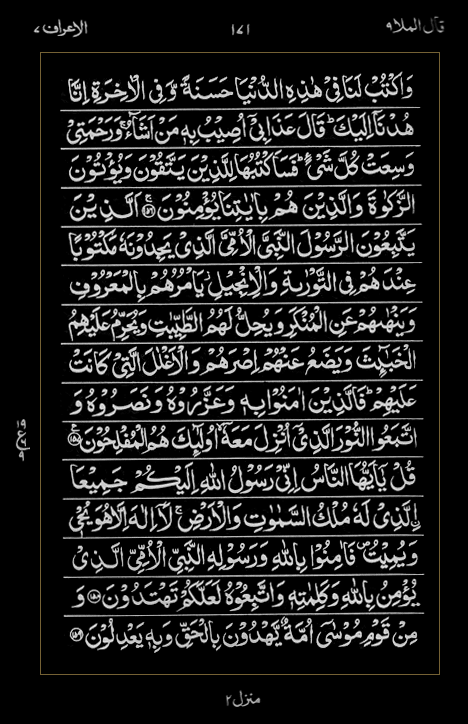 قال الملا ٩ ١٧١ الاعراف ٧
وَاكْتُبْ لَنَا فِيْ هٰذِهِ الدُّنْيَا حَسَنَةً وَّ فِي الْاٰخِرَةِ اِنَّا
هُدْنَاۤ اِلَيْكَ ؕ قَالَ عَذَابِيْۤ اُصِيْبُ بِهٖ مَنْ اَشَآءُ ۚ وَ رَحْمَتِيْ
وَسِعَتْ كُلَّ شَيْءٍ ؕ فَسَاَكْتُبُهَا لِلَّذِيْنَ يَتَّقُوْنَ وَ يُؤْتُوْنَ
الزَّكٰوةَ وَالَّذِيْنَ هُمْ بِاٰيٰتِنَا يُؤْمِنُوْنَ ۚ﴿١٥٦﴾ اَلَّذِيْنَ
يَتَّبِعُوْنَ الرَّسُوْلَ النَّبِيَّ الْاُمِّيَّ الَّذِيْ يَجِدُوْنَهٗ مَكْتُوْبًا
عِنْدَهُمْ فِي التَّوْرٰىةِ وَالْاِنْجِيْلِ ؗ يَاْمُرُهُمْ بِالْمَعْرُوْفِ
وَيَنْهٰىهُمْ عَنِ الْمُنْكَرِ وَيُحِلُّ لَهُمُ الطَّيِّبٰتِ وَيُحَرِّمُ عَلَيْهِمُ
الْخَبٰٓئِثَ وَيَضَعُ عَنْهُمْ اِصْرَهُمْ وَالْاَغْلٰلَ الَّتِيْ كَانَتْ
عَلَيْهِمْ ؕ فَالَّذِيْنَ اٰمَنُوْا بِهٖ وَعَزَّرُوْهُ وَنَصَرُوْهُ وَ
اتَّبَعُوا النُّوْرَ الَّذِيْۤ اُنْزِلَ مَعَهٗۤ ۙ اُولٰٓئِكَ هُمُ الْمُفْلِحُوْنَ ﴿١٥٧﴾
قُلْ يٰۤاَيُّهَا النَّاسُ اِنِّيْ رَسُوْلُ اللّٰهِ اِلَيْكُمْ جَمِيْعَا
ۨالَّذِيْ لَهٗ مُلْكُ السَّمٰوٰتِ وَالْاَرْضِ ۚ لَاۤ اِلٰهَ اِلَّا هُوَ يُحْيٖ
وَيُمِيْتُ ۪ فَاٰمِنُوْا بِاللّٰهِ وَرَسُوْلِهِ النَّبِيِّ الْاُمِّيِّ الَّذِيْ
يُؤْمِنُ بِاللّٰهِ وَكَلِمٰتِهٖ وَاتَّبِعُوْهُ لَعَلَّكُمْ تَهْتَدُوْنَ ﴿١٥٨﴾ وَ
مِنْ قَوْمِ مُوْسٰۤى اُمَّةٌ يَّهْدُوْنَ بِالْحَقِّ وَبِهٖ يَعْدِلُوْنَ ﴿١٥٩﴾
منزل ٢